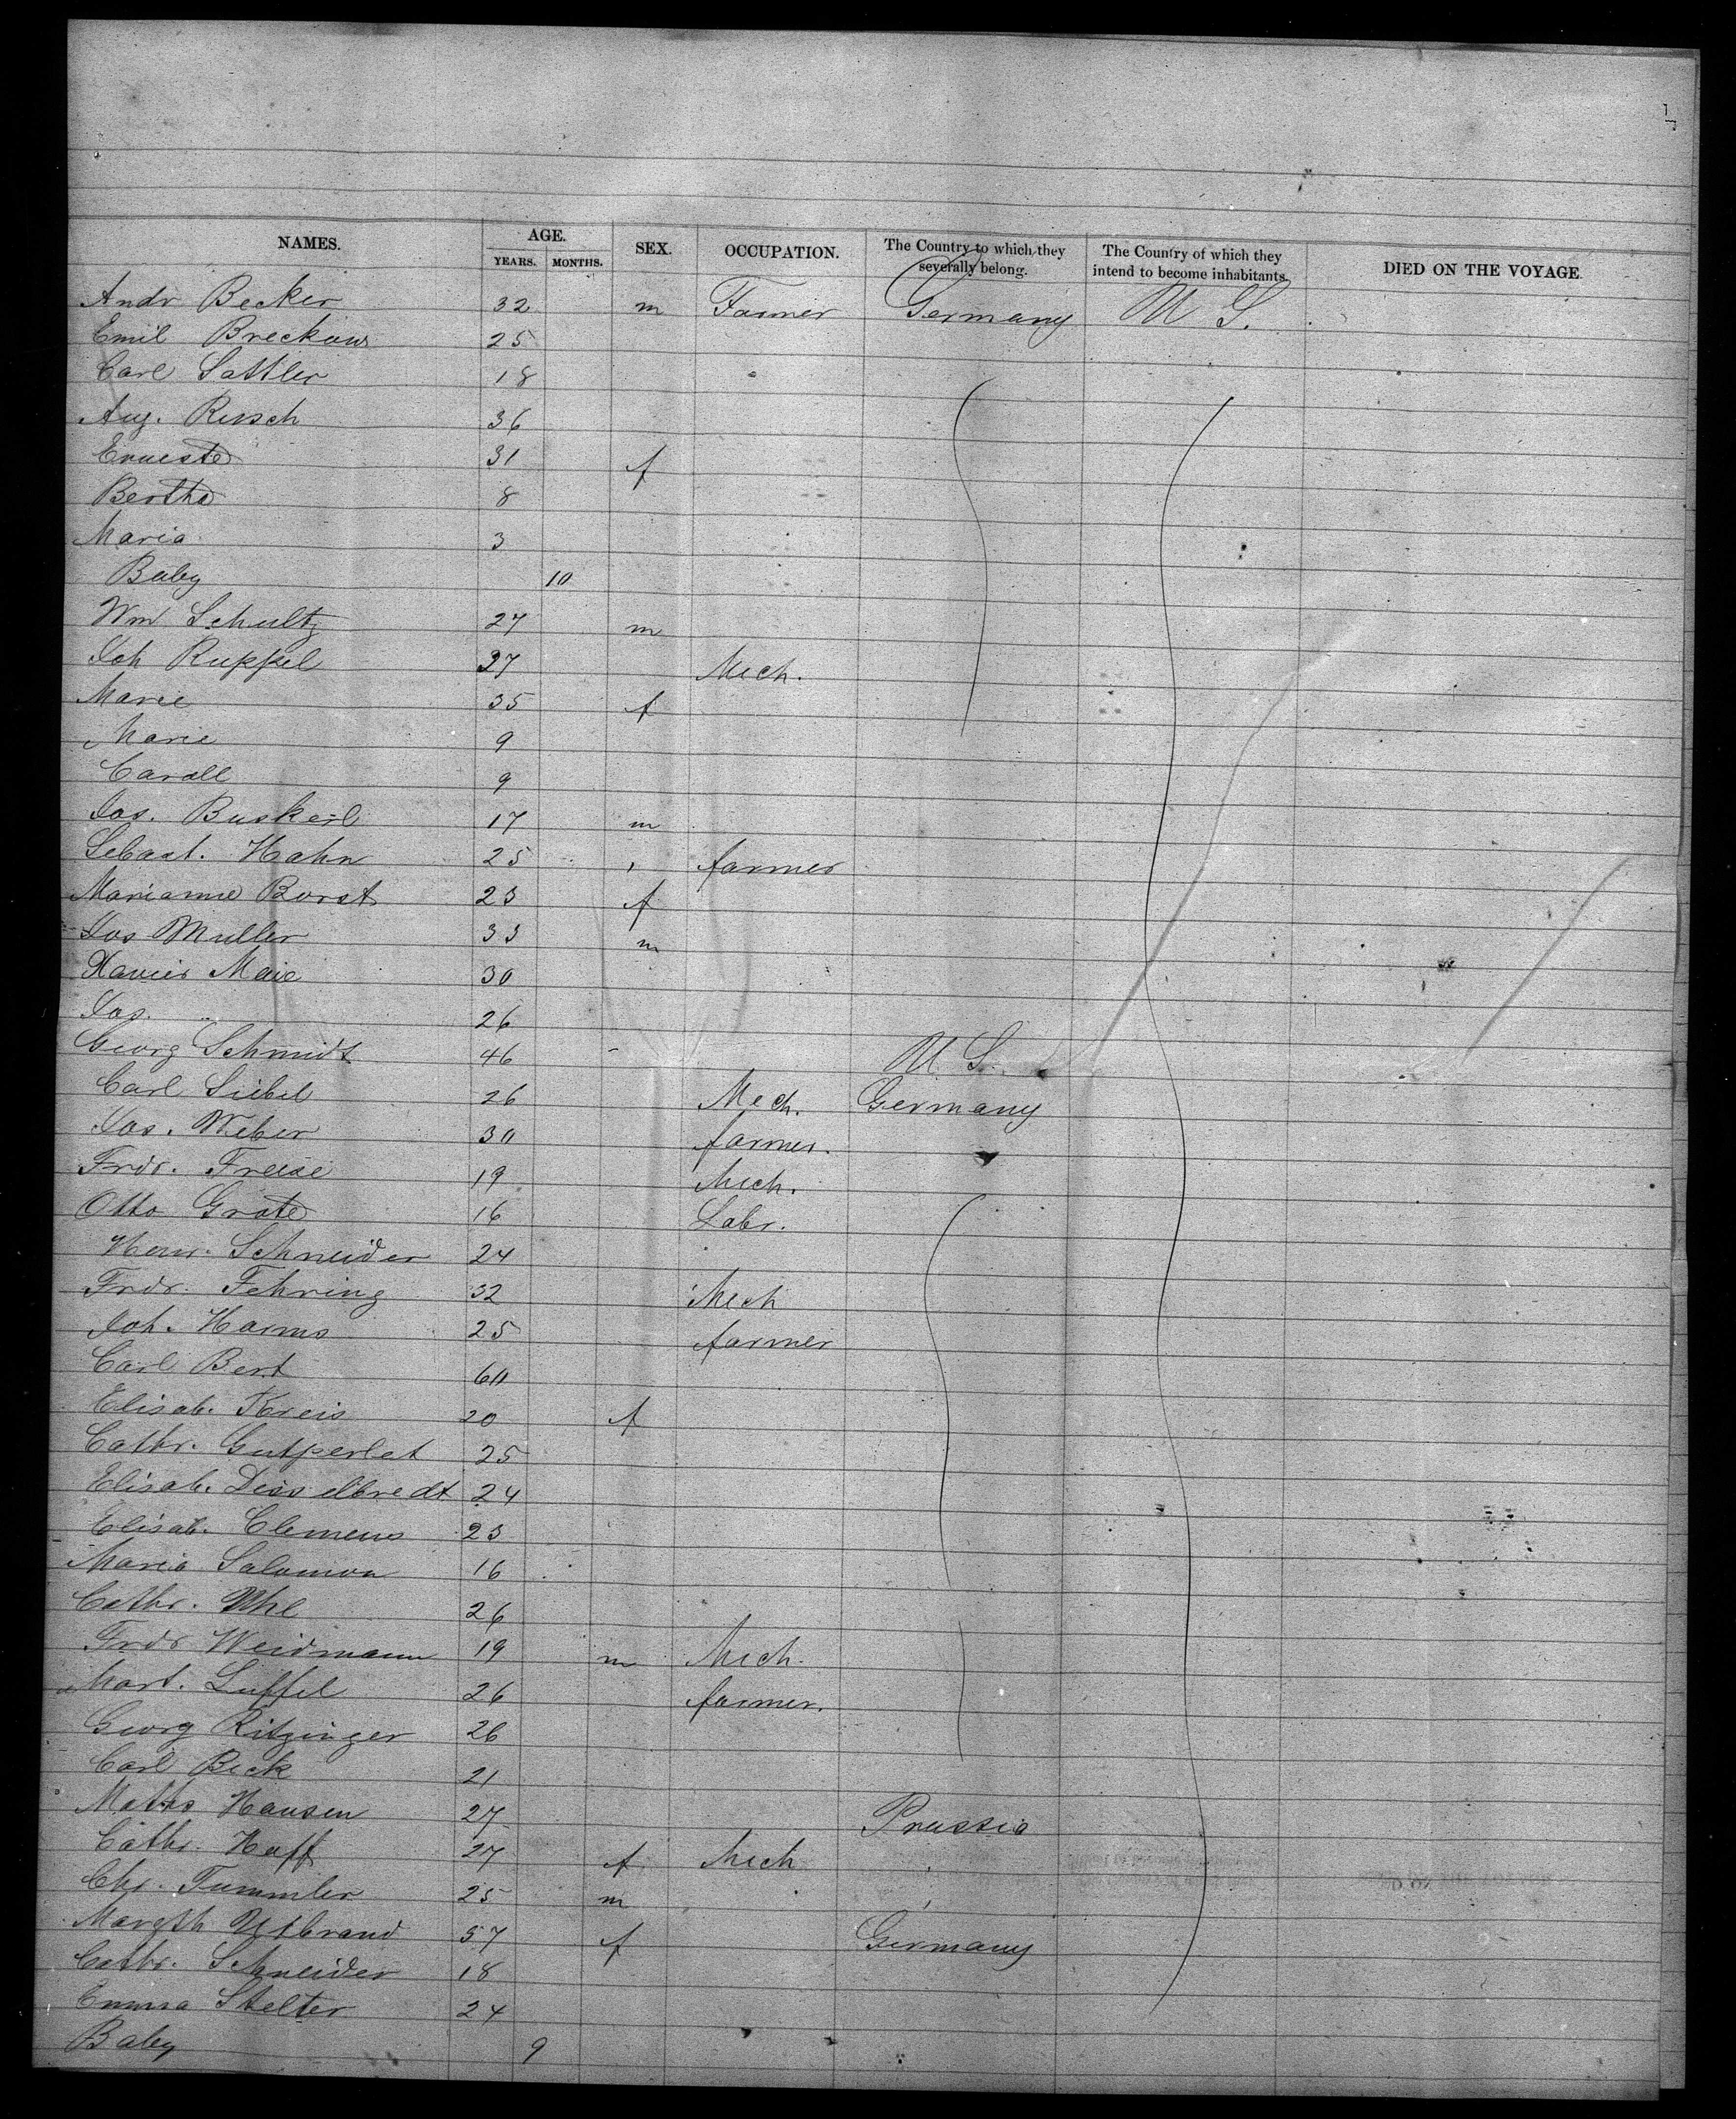 NAMES. AGE. YEARS. MONTHS. SEX. OCCUPATION. The Country to which they severally belong. The Country of which they intend to become inhabitants. DIED ON THE VOYAGE
Andr Becker 32 m Farmer Germany U S.
Emil Breckow 25
Carl Sattler 18
Aug. Rusch 36
Erneste 31 f
Bertha 8
Maria 3
Baby 10
Wm Schultz 27 m
Joh Ruppel 37 Mech.
Marie 35 f
Marie 9
Caroll 9
Jos. Buskerl 17 m
Sebast. Hahn 25 " farmer
Marianne Borst 23 f
Jos Muller 33 m
Xavier Maie 30
Jos. " 26
Georg Schmidt 46 U. S.
Carl Siebel 26 Mech. Germany
Jos. Weber 30 farmer.
Frdr. Freise 19 Mech.
Otto Grote 16 Labr.
Henr. Schneider 24
Frdr. Fehring 32 Mech
Joh. Harms 25 farmer
Carl Bert 60
Elisab. Kreis 20 f
Cathr. Gutperlet 25
Elisab. Disselbredt 24
Elisab. Clemens 23
Maria Salomon 16
Cathr. Uhl 26
Frdr Weidmann 19 m Mech.
Mart. Luffel 26 farmer.
Georg Ritzinger 26
Carl Beck 21
Maths Hansen 27 Prussia
Cathr. Huff 27 f Mech "
Chr. Tummler 25 m "
Margth Utbrand 57 f Germany
Cathr. Schneider 18
Emma Stelter 24
Baby 9